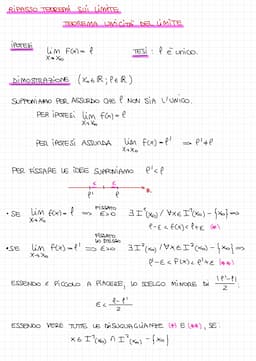 RIPASSO TEOREMI SUI LIMITI
TEOREMA UNICITÀ DEL LIMITE
IPOTESI lim F(x) = ℓ TESI: ℓ È UNICO.
x→x₀
DIMOSTRAZIONE (x₀∈ℝ; ℓ∈ℝ)
SUPPONIAMO PER ASSURDO CHE ℓ NON SIA L'UNICO.
PER IPOTESI lim F(x) = ℓ
x→x₀
PER IPOTESI ASSURDA lim F(x) = ℓ' ⇒ ℓ' ≠ ℓ
x→x₀
PER FISSARE LE IDEE SUPPONIAMO ℓ' < ℓ
ε ε
ℓ' ℓ
• SE lim F(x) = ℓ ⇒ FISSATO ε>0 ∃ I'(x₀) / ∀x∈I'(x₀) - {x₀} ⇒
x→x₀ ℓ-ε < F(x) < ℓ+ε (*)
• SE lim F(x) = ℓ' ⇒ FISSATO LO STESSO ε>0 ∃ I²(x₀) / ∀x∈I²(x₀) - {x₀} ⇒
x→x₀ ℓ'-ε < F(x) < ℓ'+ε (**)
ESSENDO ε PICCOLO A PIACERE, LO SCELGO MINORE DI |ℓ'-ℓ|/2 :
ε < ℓ-ℓ'/2
ESSENDO VERE TUTTE LE DISUGUAGLIANZE (*) E (**), SE:
x ∈ I'(x₀) ∩ I²(x₀) - {x₀}